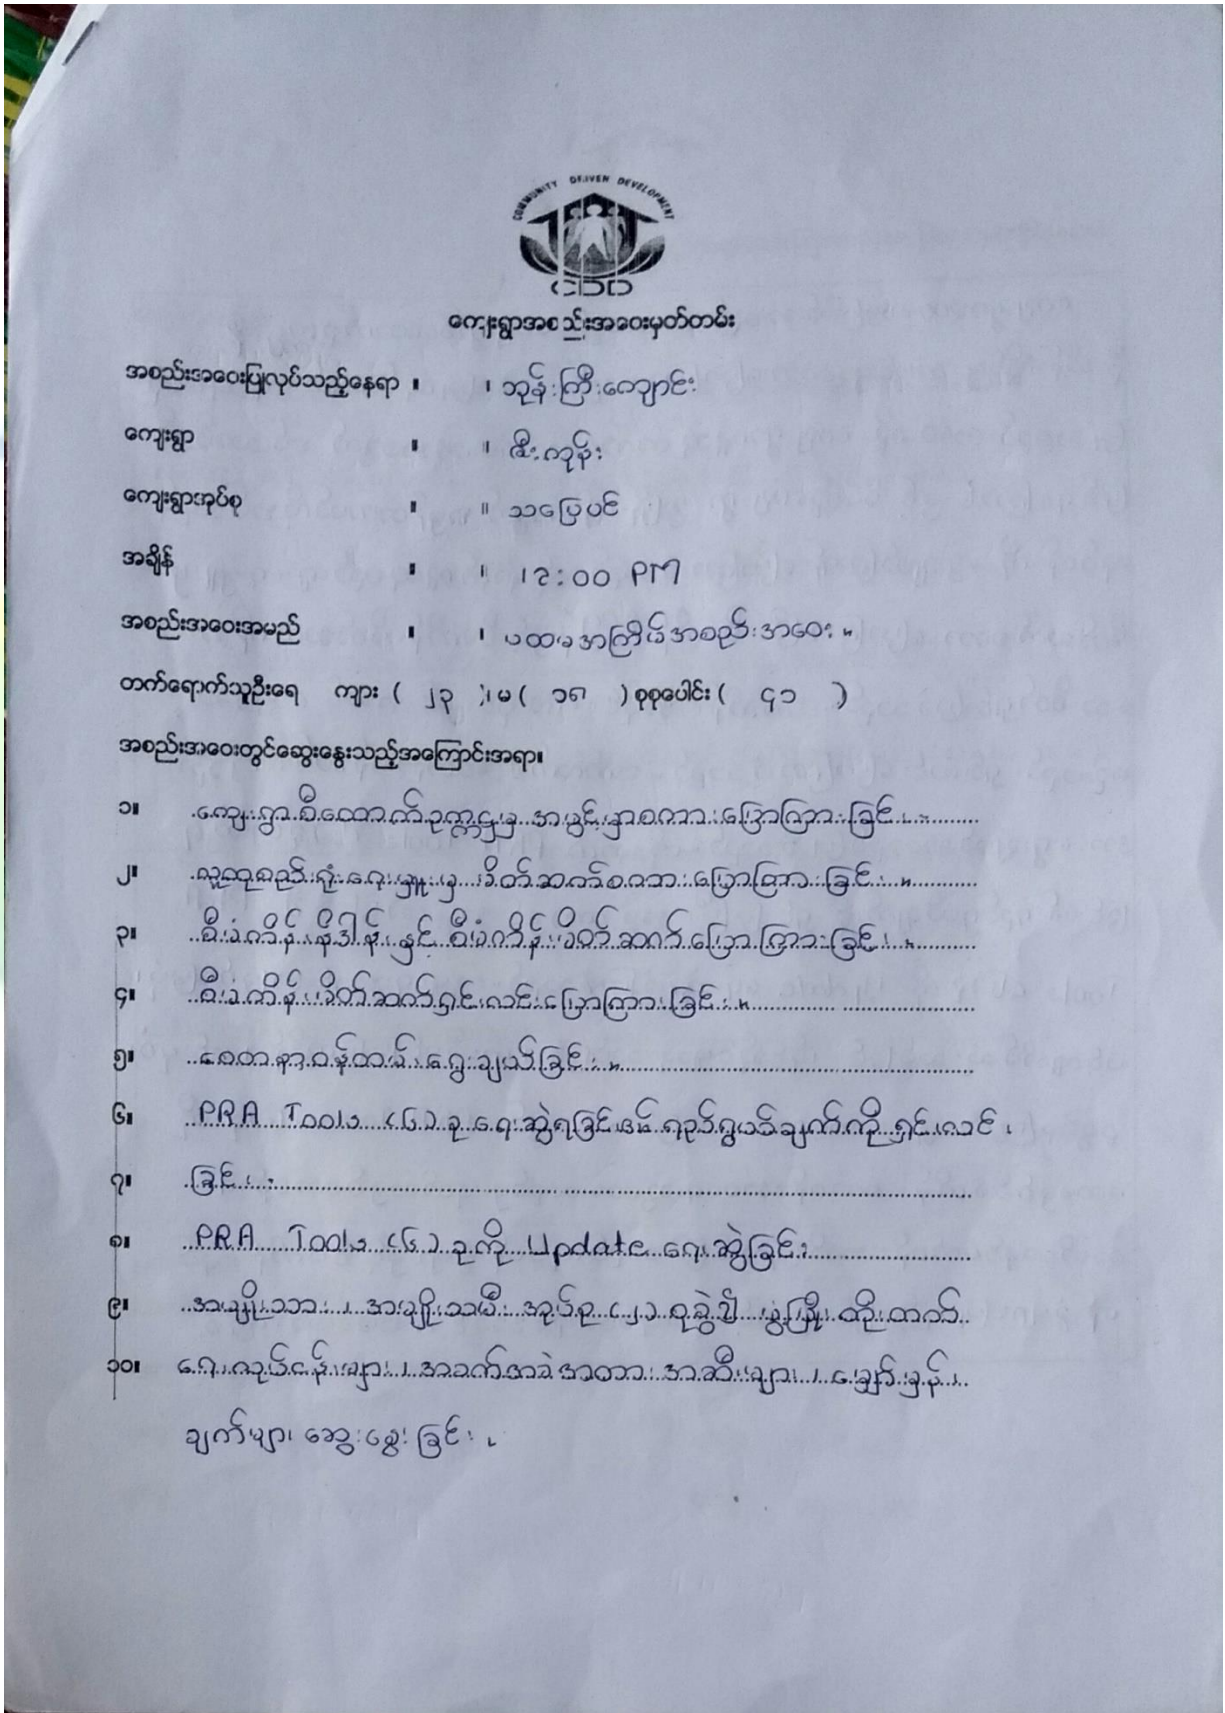 COMMUNITY DRIVEN DEVELOPMENT
CDD
ကျေးရွာအစည်းအဝေးမှတ်တမ်း
အစည်းအဝေးပြုလုပ်သည့်နေရာ ။ ၊ ဘုန်းကြီးကျောင်း
ကျေးရွာ ။ ။ ဇီးကုန်း
ကျေးရွာအုပ်စု ။ ။ သပြေပင်
အချိန် ။ ။ 12:00 PM
အစည်းအဝေးအမည် ။ ၊ ပထမအကြိမ်အစည်းအဝေး။
တက်ရောက်သူဦးရေ ကျား ( ၂၃ )၊ မ ( ၁၈ ) စုစုပေါင်း ( ၄၁ )
အစည်းအဝေးတွင်ဆွေးနွေးသည့်အကြောင်းအရာ။
၁။ ကျေးရွာစီထောက်ဥက္ကဋ္ဌမှ အဖွင့်မှာစကားပြောကြားခြင်း။
၂။ လူထုစည်းရုံးရေးမှူးမှ မိတ်ဆက်စကားပြောကြားခြင်း။
၃။ စီမံကိန်းနိဒါန်းနှင့် စီမံကိန်းမိတ်ဆက်ပြောကြားခြင်း။
၄။ စီမံကိန်းမိတ်ဆက်ရှင်းလင်းပြောကြားခြင်း။
၅။ စေတနာ့ဝန်ထမ်းရွေးချယ်ခြင်း။
၆။ PRA Tools (၆) ခု ရေးဆွဲရခြင်း၏ ရည်ရွယ်ချက်ကို ရှင်းလင်း
၇။ ခြင်း။
၈။ PRA Tools (၆) ခုကို Update ရေးဆွဲခြင်း
၉။ အမျိုးသား၊ အမျိုးသမီး အုပ်စု (၂) စုခွဲ၍ ဖွံ့ဖြိုးတိုးတက်
၁၀။ ရေးလုပ်ငန်းများ၊ အခက်အခဲအတားအဆီးများ၊ မျှော်မှန်း
ချက်များ ဆွေးနွေးခြင်း။